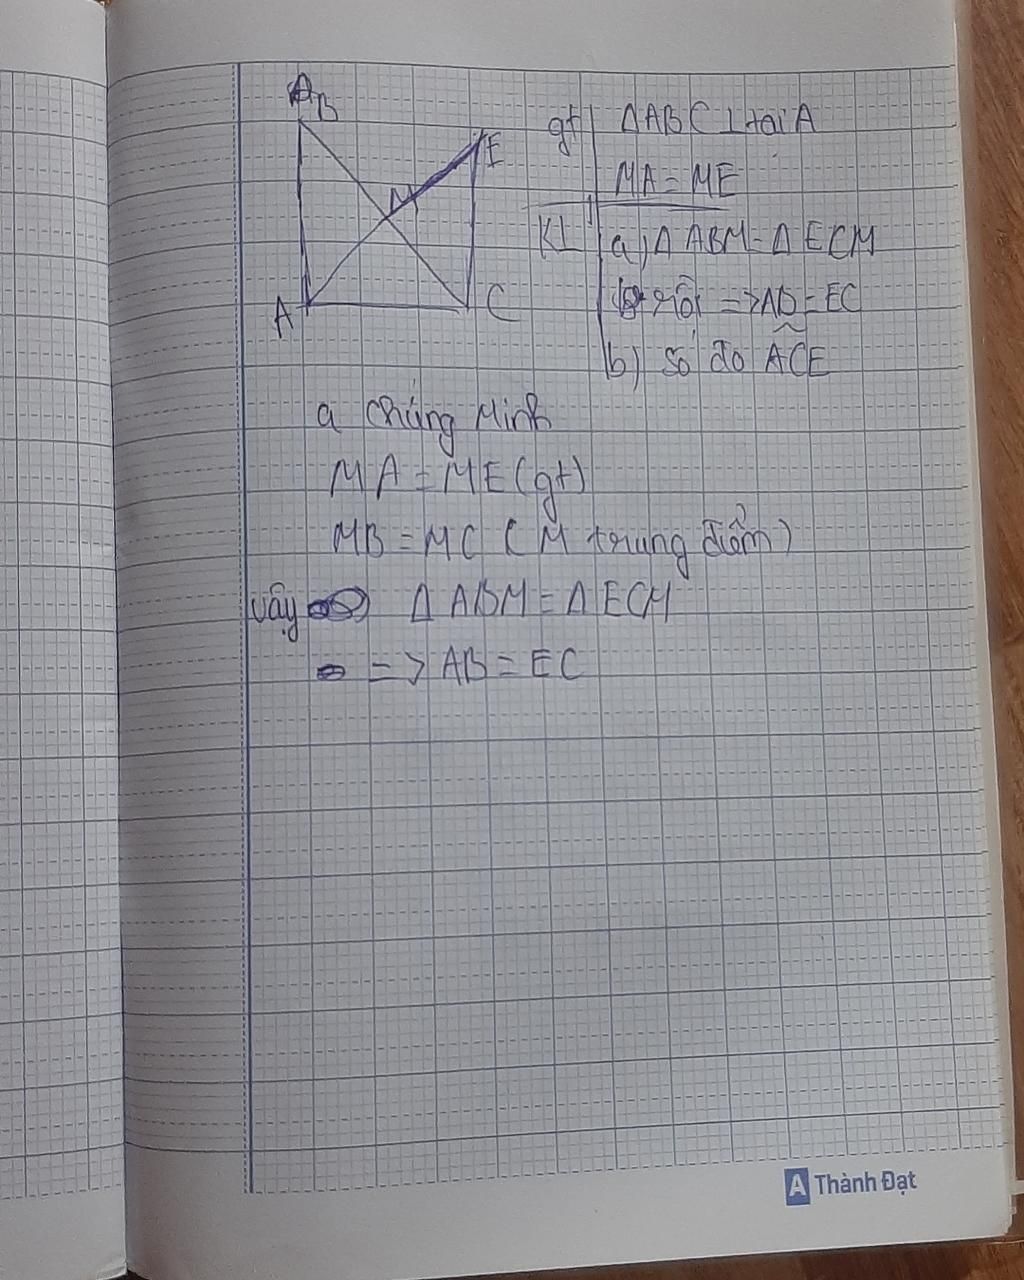 B
E
M
A
C
gt ΔABC ⊥ tại A
MA = ME
KL a) Δ ABM = Δ ECM
rồi => AB = EC
b) số đo ACE
a chứng Minh
MA = ME (gt)
MB = MC ( M trung điểm )
vậy Δ ABM = Δ ECM
=> AB = EC
A Thành Đạt